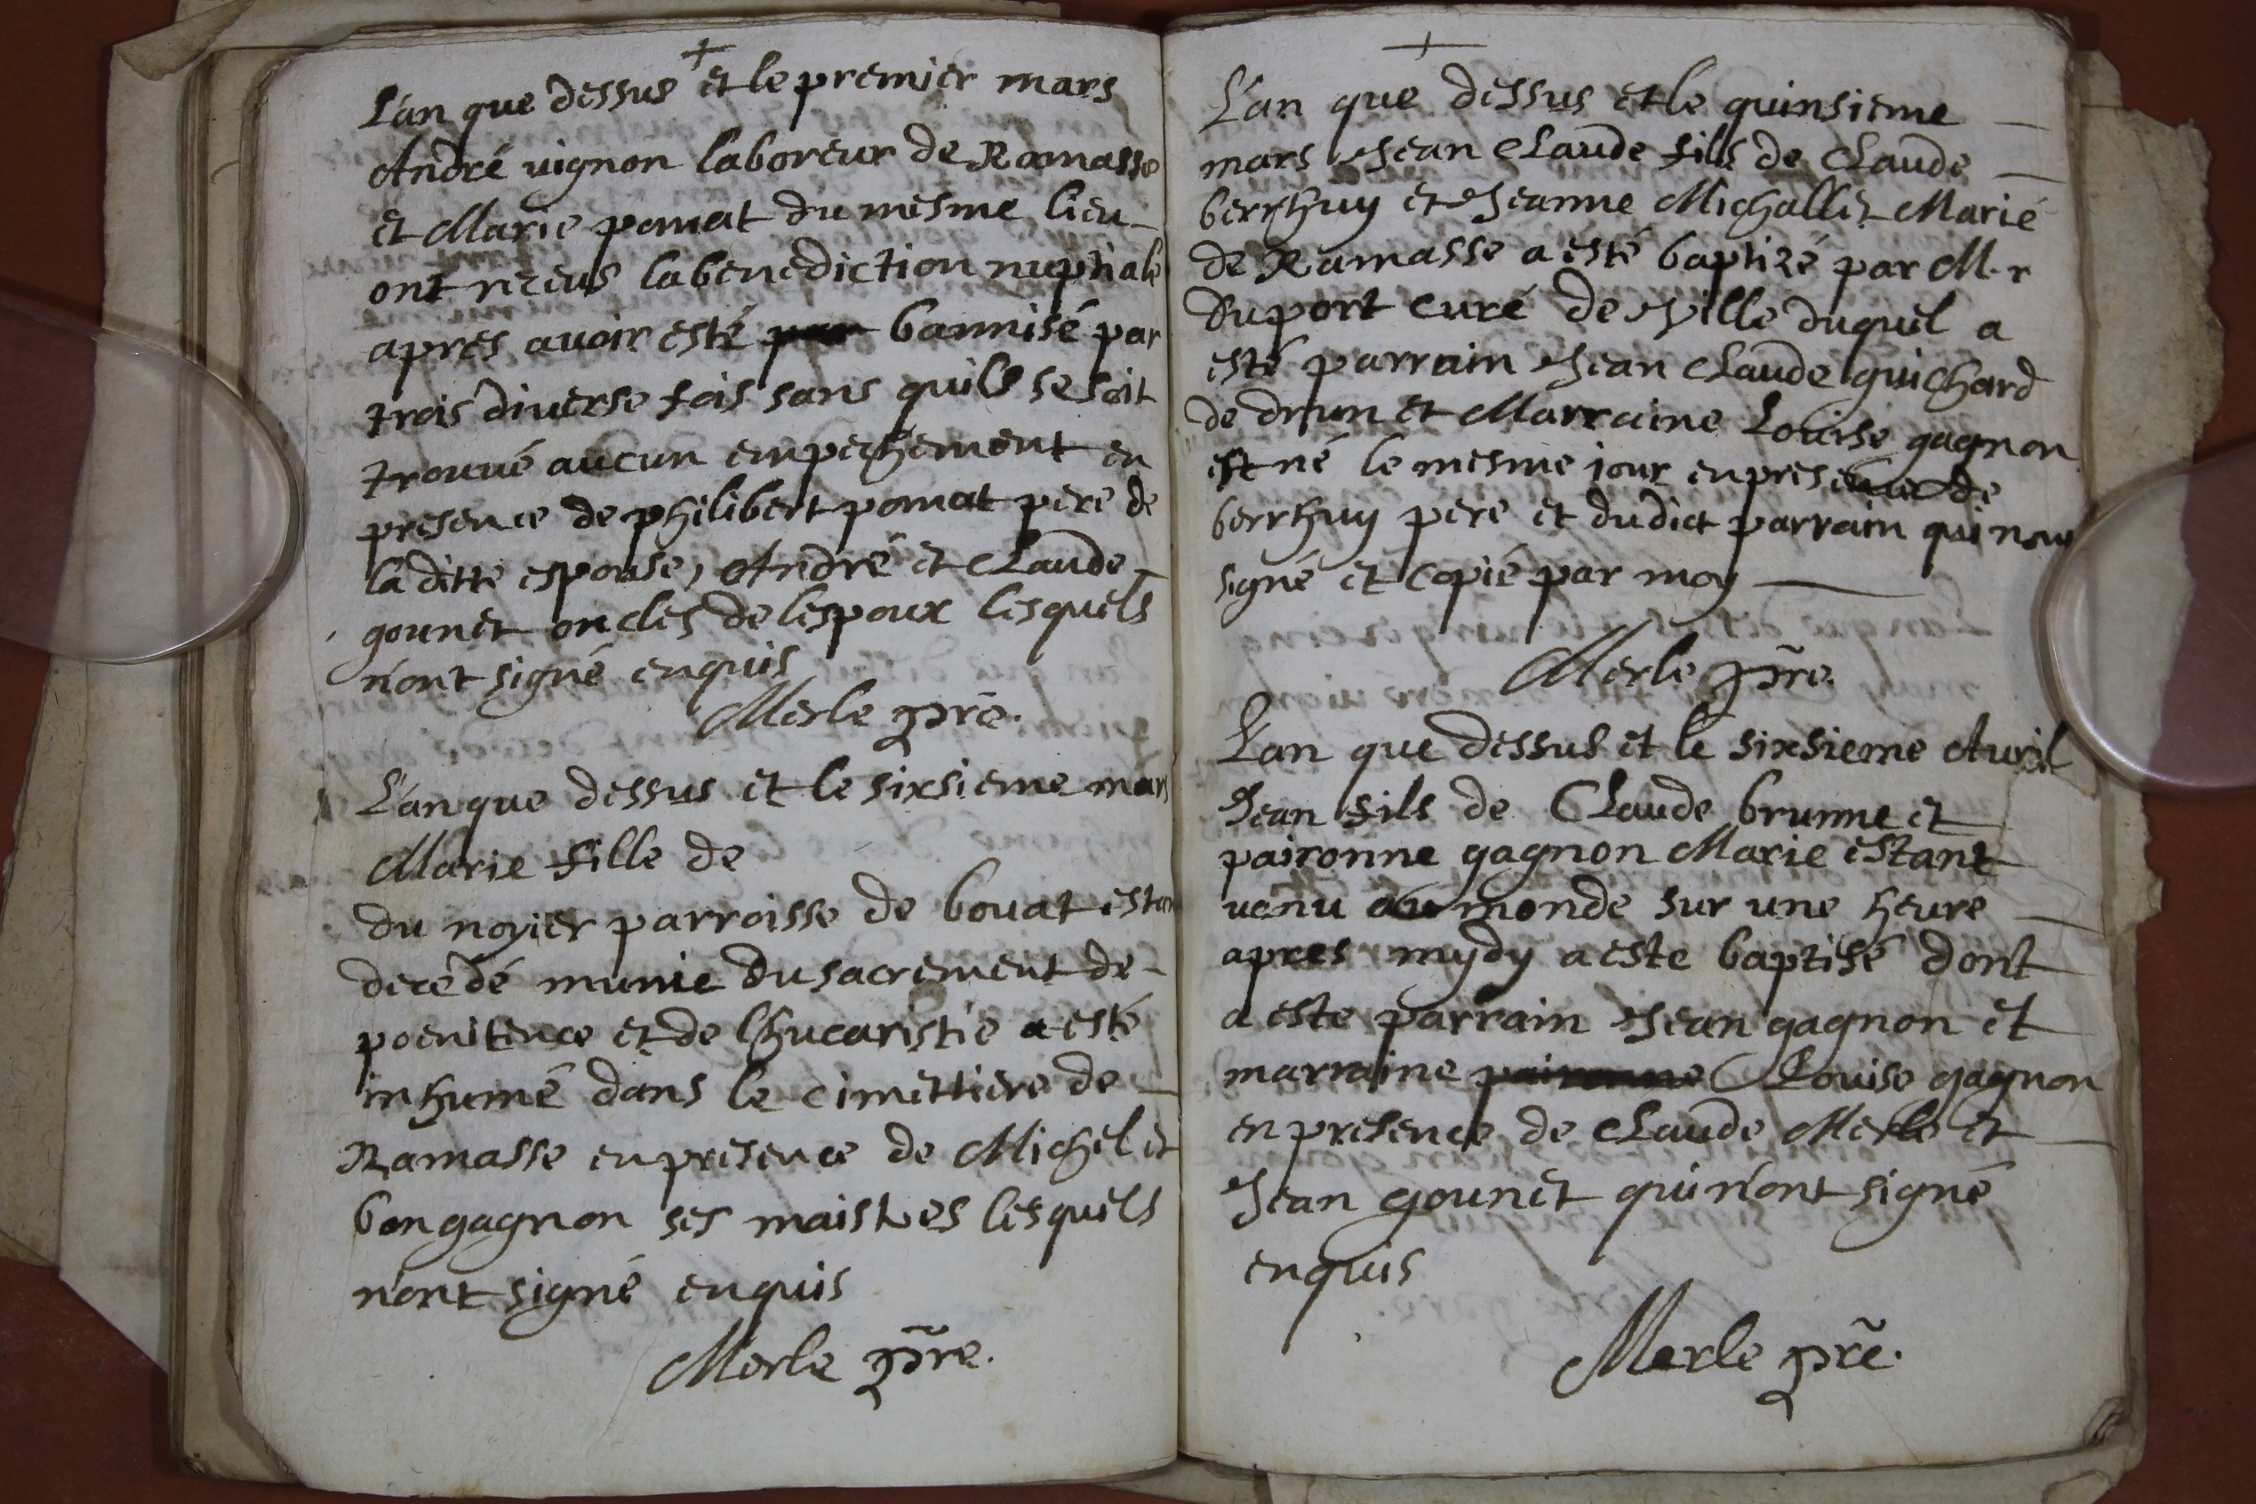 +
L'an que dessus et le premier mars
André vignon laboreur de Ramasse
et Marie pomat du mesme lieu
ont receus la benediction nuptiale
apres avoir esté par bannisé par
trois diverse fois sans quils se soit
trouvé aucun empechement en
presence de philibert pomat pere de
la ditte espouse, André et Claude
gounet oncles de lespoux lesquels
n'ont signé enquis
Merle ptre.
L'an que dessus et le sixsieme mars
Marie fille de
du noyier parroisse de bouat estan
decedé munie du sacrement de
poenitence et de lhucaristie a esté
inhumé dans le cimettiere de
Ramasse en presence de Michel et
bon gagnon ses maistres lesquels
n'ont signé enquis
Merle ptre.
+
L'an que dessus et le quinsieme
mars Jean Claude fils de Claude
berrhuy et Jeanne Michallet Marié
de Ramasse a esté baptizé par M.r
Duport curé de Ville duquel a
esté parrain Jean Claude guichard
de drun et Marraine Louise gagnon
est né le mesme jour en presence de
berrhuy pere et dudict parrain qui nont
signé et copié par moy
Merle ptre.
L'an que dessus et le sixsieme Avril
Jean fils de Claude brunne et
paironne gagnon Marié estant
venu au monde sur une heure
apres mydy a este baptisé dont
a este parrain Jean gagnon et
marraine paironne Louise gagnon
en presence de Claude Merle et
Jean gounet qui n'ont signé
enquis
Merle ptre.